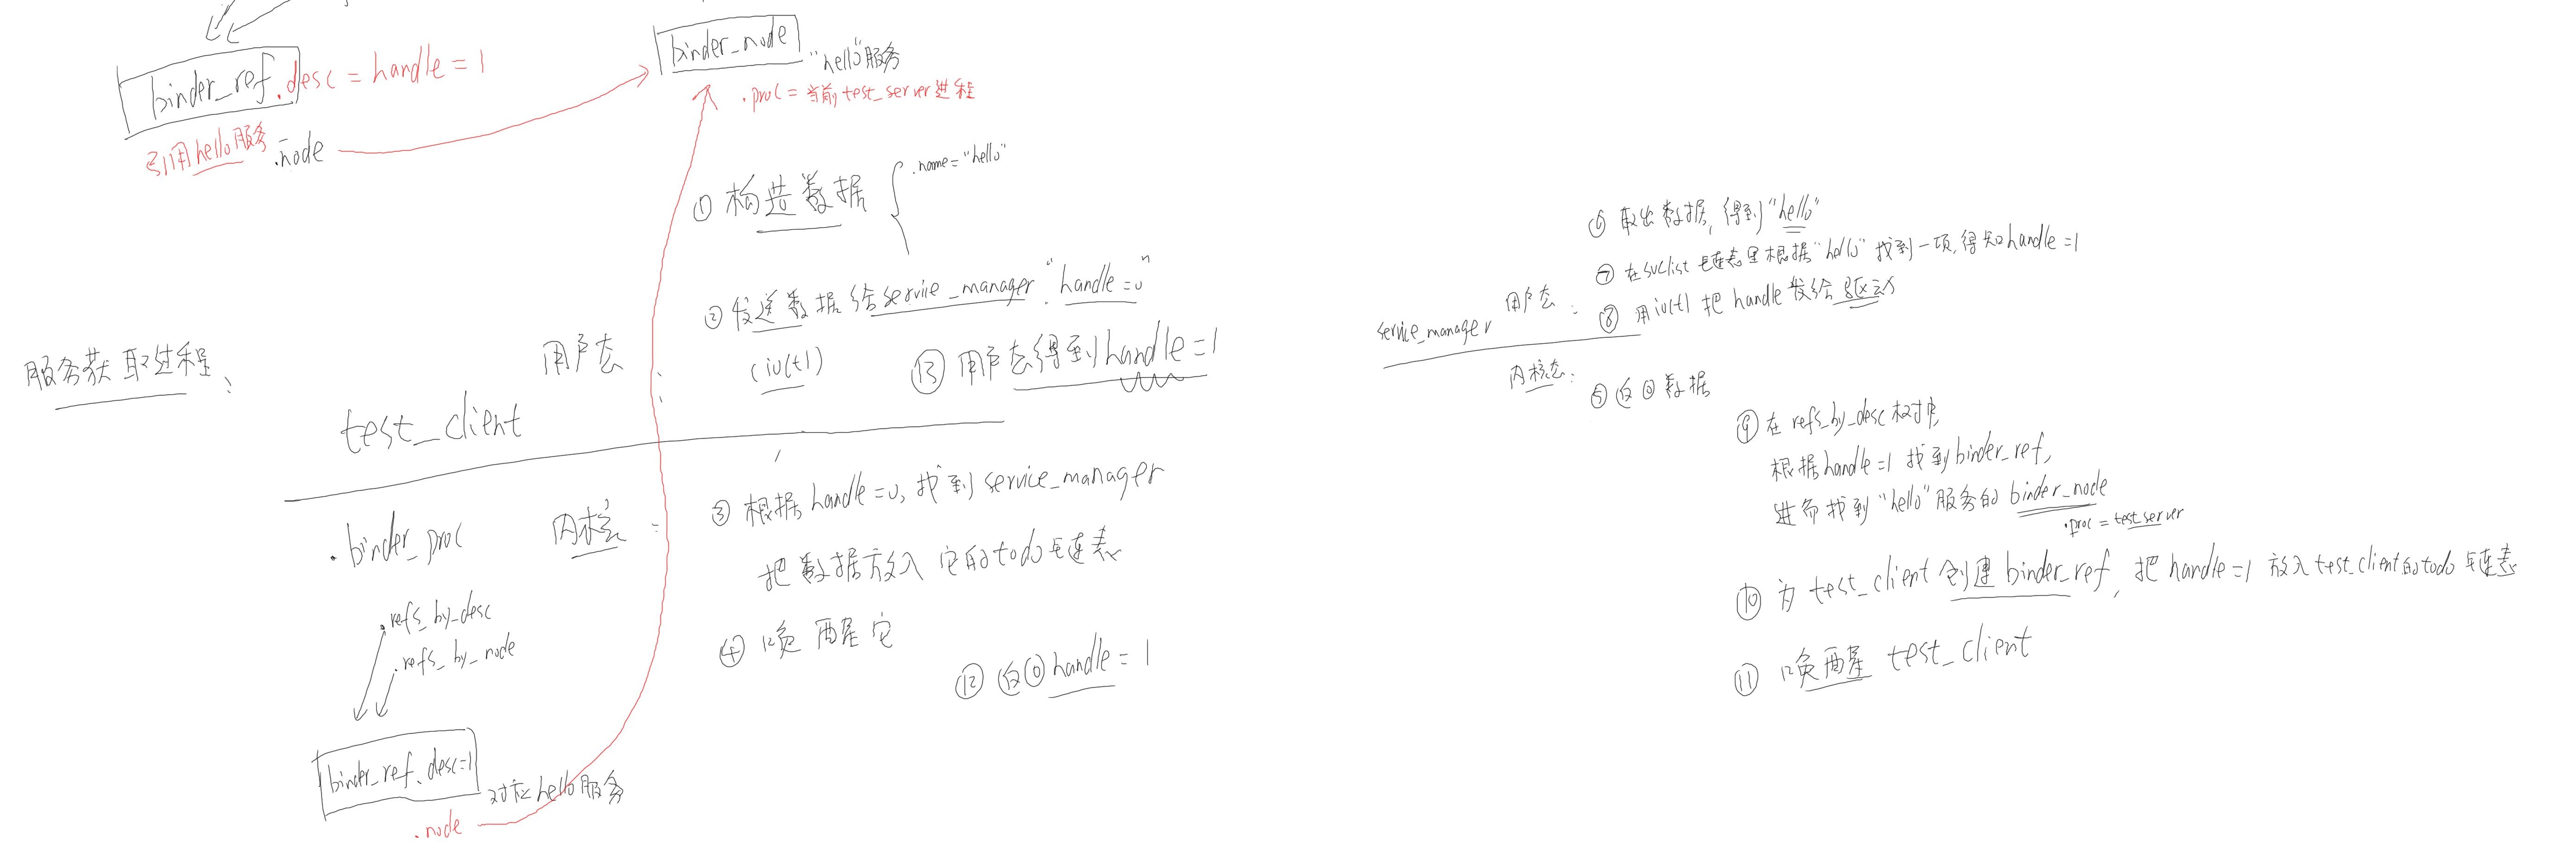 binder_ref .desc = handle = 1
引用hello服务
.node
binder_node
"hello"服务
.proc = 当前test_server进程
① 构造数据 { .name="hello"
② 发送数据给service_manager "handle=0"
(ioctl)
⑬ 用户态得到handle=1
服务获取过程:
用户态 :
test_client
内核态 :
.binder_proc
.refs_by_desc
.refs_by_node
③ 根据handle=0, 找到service_manager
把数据放入它的todo链表
④ 唤醒它
⑫ 返回handle = 1
binder_ref.desc=1
对应hello服务
.node
service_manager
用户态:
⑥ 取出数据, 得到"hello"
⑦ 在svclist链表里根据"hello"找到一项, 得知handle=1
⑧ 用ioctl把handle发给驱动
内核态:
⑤ 返回数据
⑨ 在refs_by_desc树中,
根据handle=1找到binder_ref,
进而找到"hello"服务的binder_node
.proc = test_server
⑩ 为test_client创建binder_ref, 把handle=1放入test_client的todo链表
⑪ 唤醒test_client